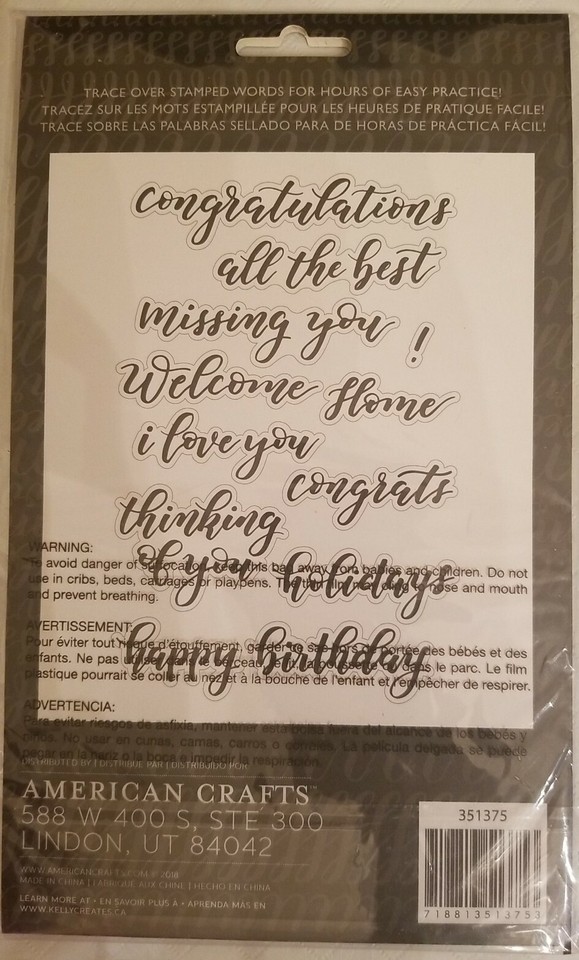 TRACE OVER STAMPED WORDS FOR HOURS OF EASY PRACTICE!
TRACEZ SUR LES MOTS ESTAMPILLÉE POUR LES HEURES DE PRATIQUE FACILE!
TRACE SOBRE LAS PALABRAS SELLADO PARA DE HORAS DE PRÁCTICA FÁCIL!
congratulations
all the best
missing you !
Welcome Home
i love you
congrats
thinking
of you holidays
happy birthday
WARNING:
To avoid danger of suffocation, keep this bag away from babies and children. Do not
use in cribs, beds, carriages or playpens. The thin film may cling to nose and mouth
and prevent breathing.
AVERTISSEMENT:
Pour éviter tout risque d'étouffement, garder ce sac hors de portée des bébés et des
enfants. Ne pas utiliser dans le berceau, le lit, la poussette ou dans le parc. Le film
plastique pourrait se coller au nez et à la bouche de l'enfant et l'empêcher de respirer.
ADVERTENCIA:
Para evitar riesgos de asfixia, mantener esta bolsa fuera del alcance de los bebés y
niños. No usar en cunas, camas, carros o corrales. La película delgada se puede
pegar en la nariz o la boca e impedir la respiración.
DISTRIBUTED BY | DISTRIBUÉ PAR | DISTRIBUIDO POR
AMERICAN CRAFTS™
588 W 400 S, STE 300
LINDON, UT 84042
WWW.AMERICANCRAFTS.COM © 2018
MADE IN CHINA | FABRIQUÉ AUX CHINE | HECHO EN CHINA
LEARN MORE AT • EN SAVOIR PLUS À • APRENDA MÁS EN
WWW.KELLYCREATES.CA
351375
718813513753